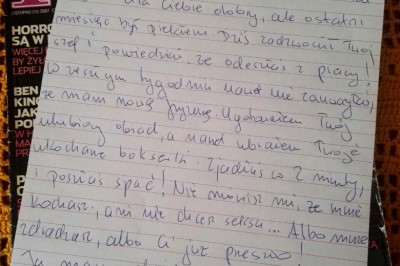 dla Ciebie dobry, ale ostatni
miesiąc był piekłem. Dziś zadzwonił Twój
szef i powiedział, że odeszłaś z pracy!
W zeszłym tygodniu nawet nie zauważyłaś,
że mam nową fryzurę. Ugotowałem Twój
ulubiony obiad, a nawet ubrałem Twoje
ukochane bokserki. Zjadłaś w 2 minuty,
i poszłaś spać! Nie mówisz mi, że mnie
kochasz, ani nie chcesz seksu... Albo mnie
zdradzasz, albo Ci już przeszło!
Ja
LISTOPAD (11) 2007
HORRO
SĄ W
WIĘCEJ
BY ŻYŁ
LEPIEJ
BEN
KING
JAK
POD
W H
MA
PRA